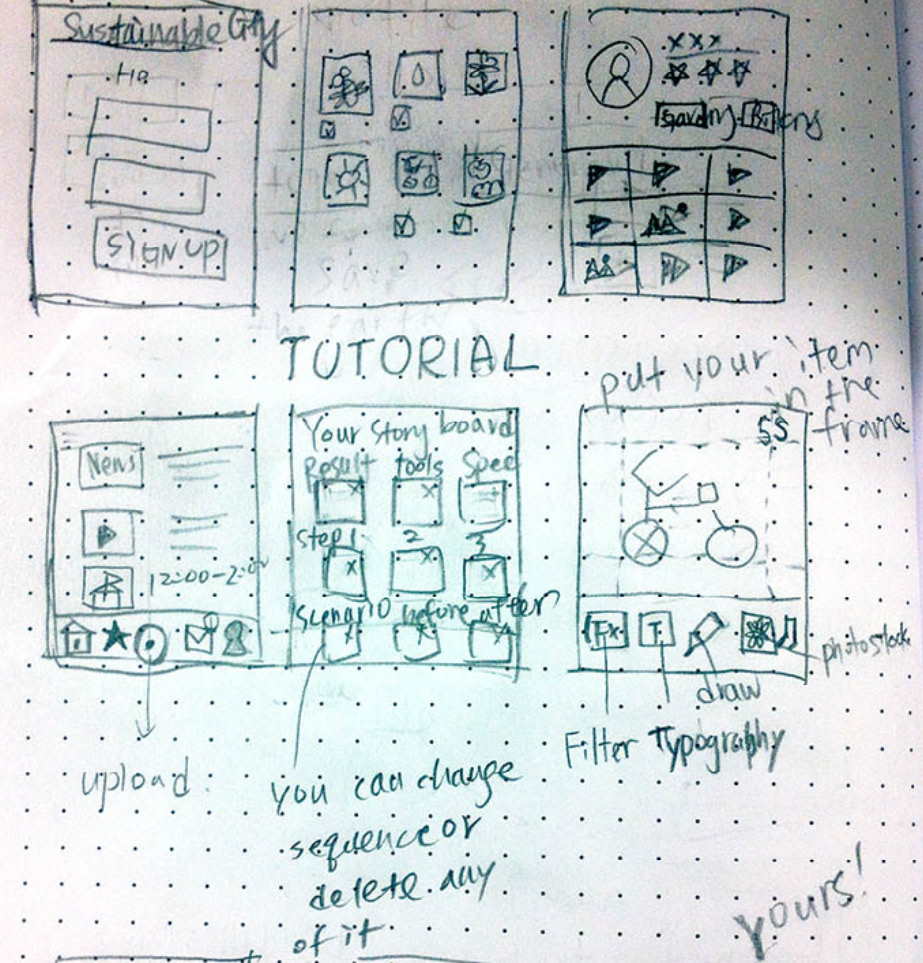 Sustainable City
SIGN UP
TUTORIAL
put your item
in the
frame
News
12:00-2:00
upload
Your Story board
result tools Spec
step 1 2 3
scenario before after
you can change
sequence or
delete any
of it
$$
Fx T
draw
Filter Typography
yours!